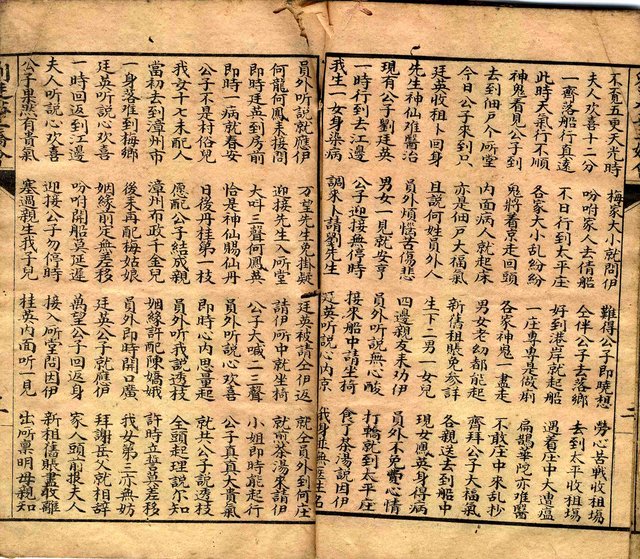 不覓五更天光時 梅家大小就問伊 難得公子即曉想 勞心苦戰收租場
夫人欢喜十二分 吩咐家人去倩船 仝伴公子去落鄉 去到太平收租場
一齊落船行直透 不日行到太平庄 好到港岸就起船 遇着庄中大遭瘟
此時天氣行不順 各家大小乱紛紛 一庄專專是做痢 扁鵲華陀亦难醫
神鬼看見公子到 鬼將看見走回頭 各家神鬼一盡走 不敢庄中來乱抄
去到佃戶个所堂 內面病人就起床 男女老幼都能起 齊拜公子大福氣
今日公子來到只 亦是佃戶大福氣 新旧租賬免參詳 各親送去到船中
廷英收租卜回身 且說何姓員外人 生下二男一女兒 現女鳳英身得病
先生神仙难醫治 員外煩惱苦傷悲 四邊親友來功伊 員外不免寬心情
現有公子劉廷英 男女一見就安亨 員外听說無心酸 打轎就到太平庄
一時行到去江邊 公子迎接無停時 接來船中請坐椅 食了茶湯說因伊
我生一女身染病 調來卜請劉先生 廷英听說內心京 我身並無先生名
員外听說就應伊 万望先生免掛疑 廷英被請仝伊 就仝員外到何庄
何龍何鳳來接問 迎接先生入所堂 請伊所中就坐椅 就煎茶湯來請伊
即時廷英到房前 大呌三聲何鳳英 公子大喊二三聲 小姐即時能起行
即時一病就春安 恰是神仙賜仙丹 員外听說心欢喜 公子真真大貴氣
公子不是村俗兒 日後丹桂第一枝 即時心內思量起 就共公子說透枝
我女十七未配人 愿配公子結成親 員外听我說透枝 全頭起理說尔知
當初去到漳州市 漳州布政千金兒 姻緣許配陳嬌娥 許時立誓莫差移
一身落难到梅鄉 後來再配梅姑娘 員外即時開口廣 我女第三亦無妨
廷英听說心欢喜 姻緣前定無差移 廷英公子就應伊 拜謝岳父就相辞
一時回返到江邊 吩咐開船莫延遲 萬望公子回返身 家人頭前報夫人
夫人听說心欢喜 迎接公子勿停時 接入所堂問因伊 新租旧賬盡收離
公子果然有貴氣 塞過親生我子兒 桂英內面听一見 出所稟明母親知